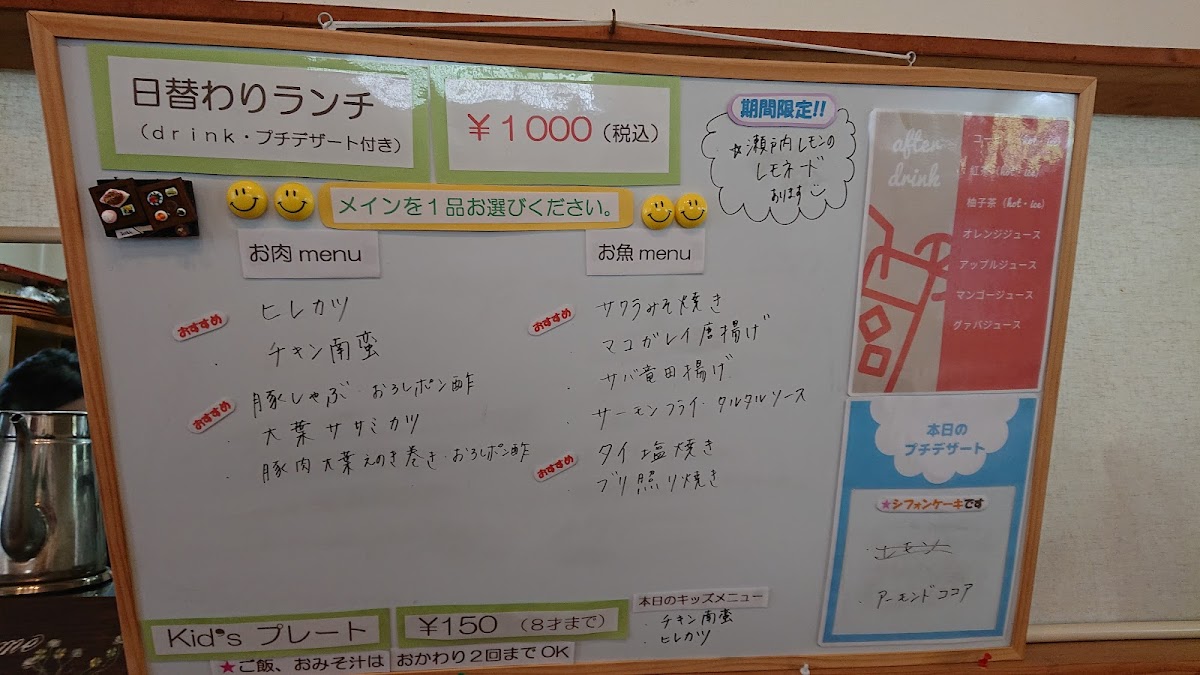 日替わりランチ
(drink・プチデザート付き)
￥1000(税込)
期間限定!!
☆瀬戸内レモンの
レモネード
あります
メインを1品お選びください。
お肉menu
ヒレカツ
おすすめ
チキン南蛮
豚しゃぶ・おろしポン酢
おすすめ
・大葉ササミカツ
・豚肉大葉えのき巻き・おろしポン酢
お魚menu
サクラみそ焼き
おすすめ
・マコガレイ唐揚げ
・サバ竜田揚げ
・サーモンフライ・タルタルソース
タイ塩焼き
おすすめ
・ブリ照り焼き
after
drink
コーヒー(hot・ice)
紅茶(hot・ice)
柚子茶(hot・ice)
オレンジジュース
アップルジュース
マンゴージュース
グァバジュース
本日の
プチデザート
★シフォンケーキです
・レモン
・アーモンドココア
Kid's プレート
￥150(8才まで)
★ご飯、おみそ汁は おかわり2回までOK
本日のキッズメニュー
・チキン南蛮
・ヒレカツ